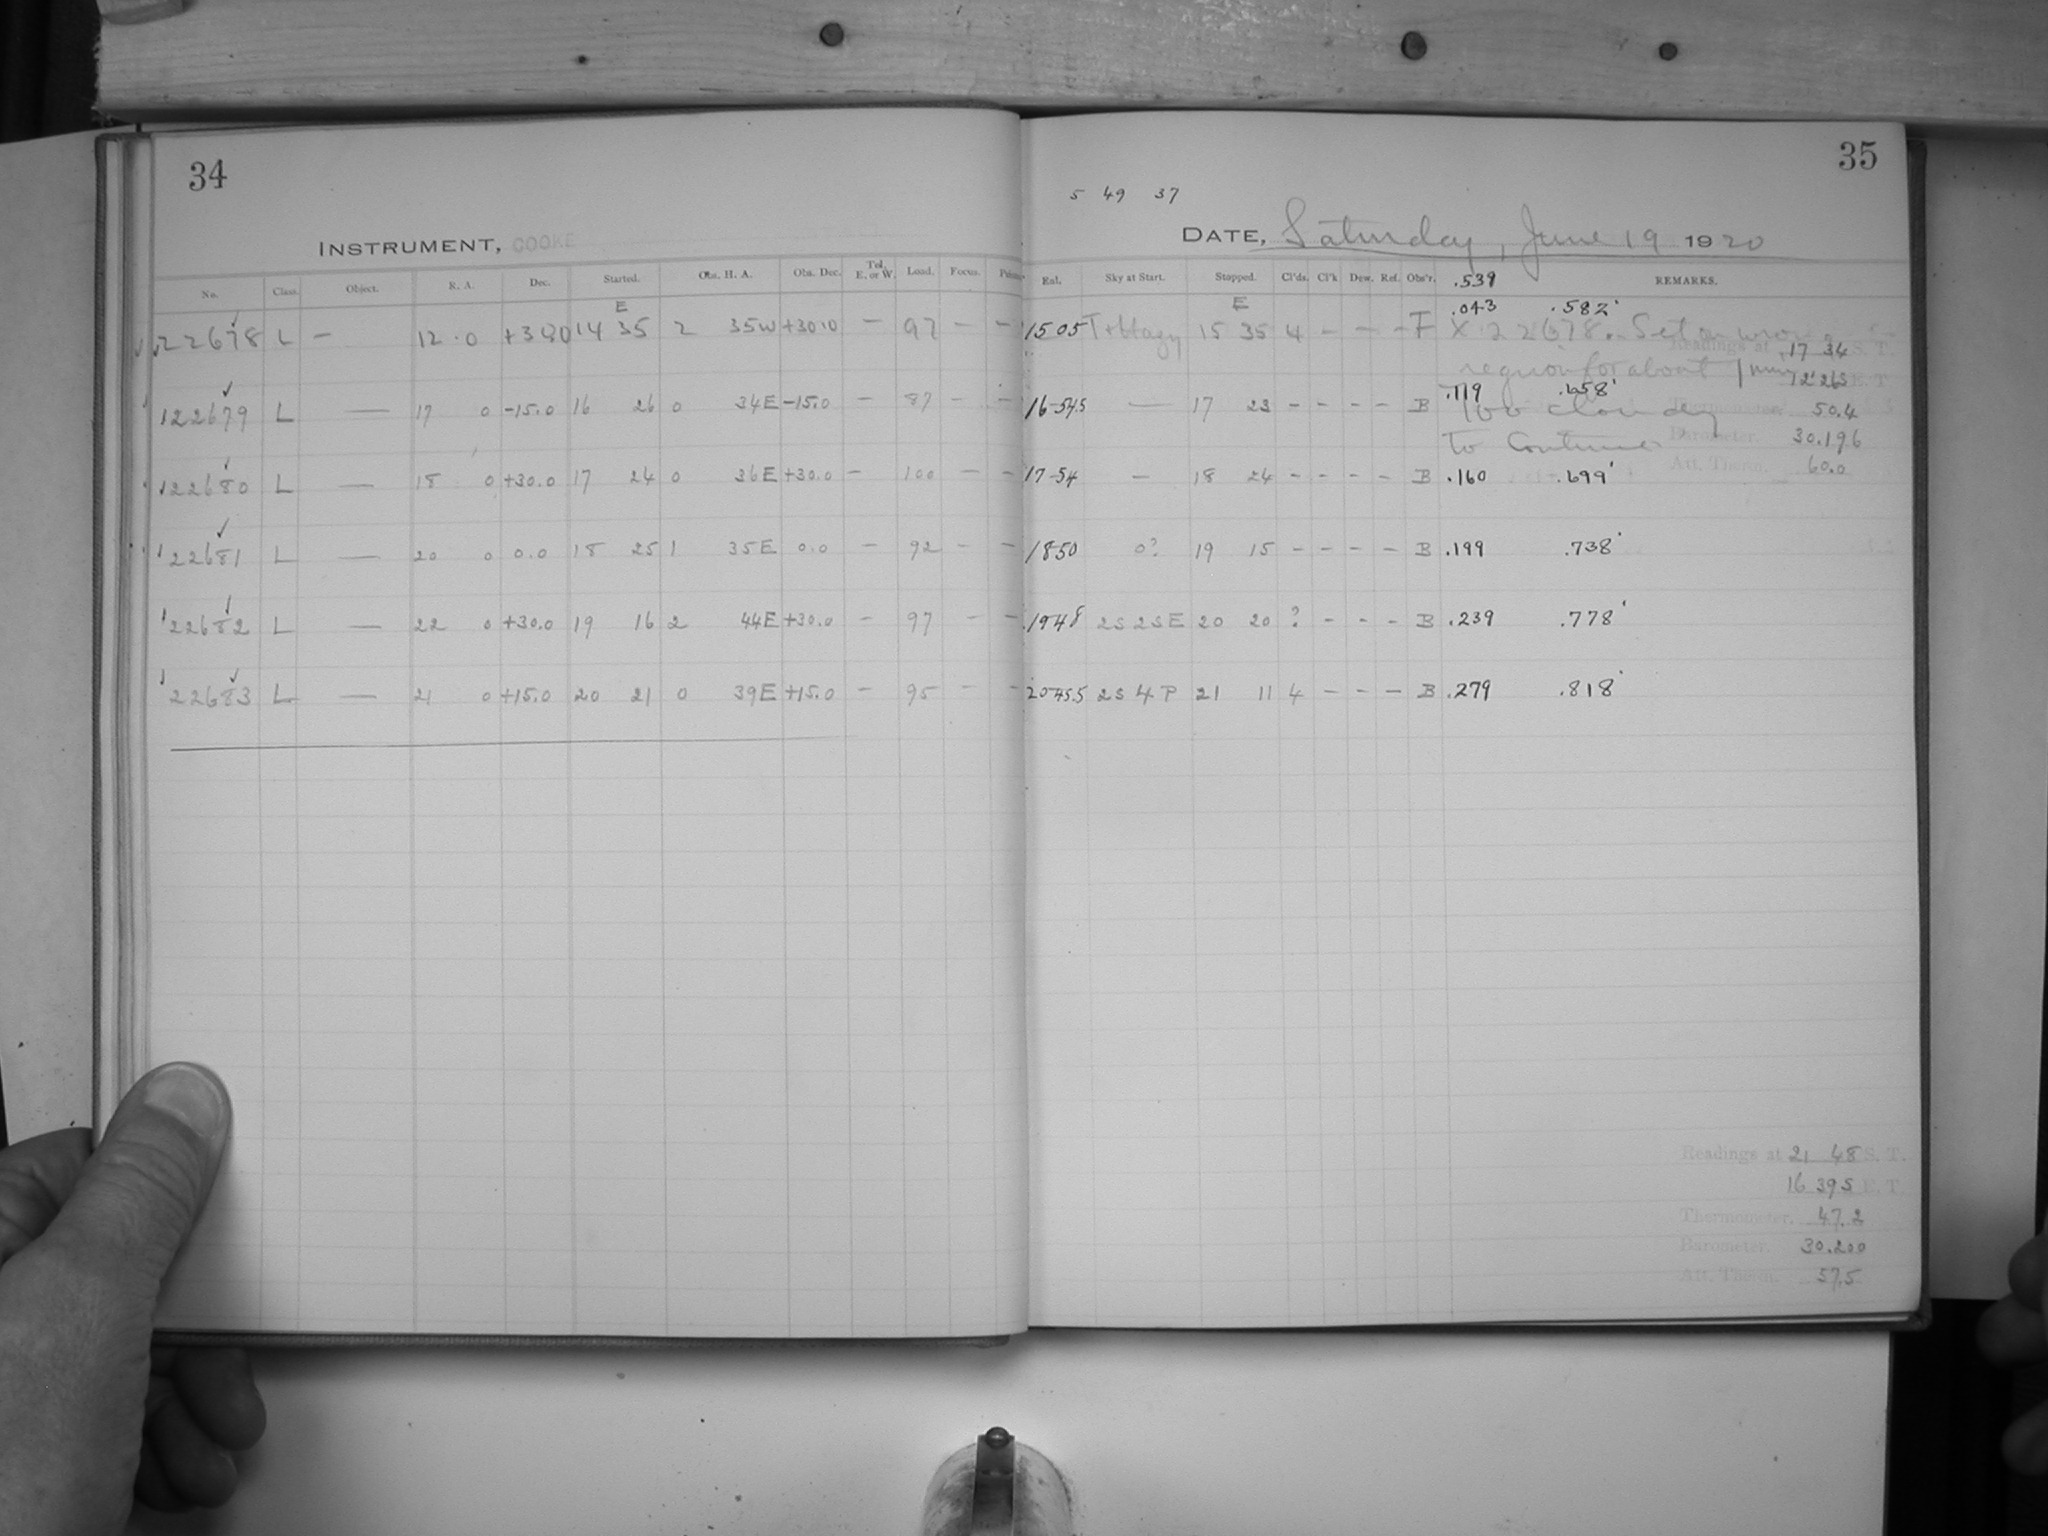 34
INSTRUMENT, COOKE
No. Class. Object. R. A. Dec. Started. Obs. H. A. Obs. Dec. Tel. E. or W. Load. Focus.
E
22678 L – 12 . 0 14 35 2 35W +30.0 – 97 – –
22679 L — 17 0 -15.0 16 26 0 34E -15.0 – 87 – –
22680 L — 18 0 +30.0 17 24 0 36E +30.0 – 100 – –
22681 L — 20 0 0.0 18 25 1 35E 0.0 – 92 – –
22682 L — 22 0 +30.0 19 16 2 44E +30.0 – 97 – –
22683 L — 21 0 +15.0 20 21 0 39E +15.0 – 95 – –
35
5 49 37
DATE, Saturday, June 19 1920
Eal. Sky at Start. Stopped. Cl'ds. Cl'k Dew. Ref. Obs'r. .539 REMARKS.
E .043 .582
1505 T+Hazy 15 35 4 – – – F X 22678. Set on
Readings at 17 34 S. T.
region for about 1 min
E. T.
16-54.5 — 17 23 – – – – B .119 .658
Too cloudy
Thermometer. 50.4
to Continue
Barometer. 30.196
Att. Therm. 60.0
17-54 — 18 24 – – – – B .160 .699
1850 0? 19 15 – – – – B .199 .738
1948 2S 2SE 20 20 ? – – – B .239 .778
2045.5 2S 4P 21 11 4 – – – B .279 .818
Readings at 21 48 S. T.
16 395 E. T.
Thermometer. 47.2
Barometer. 30.200
Att. Therm. 57.5